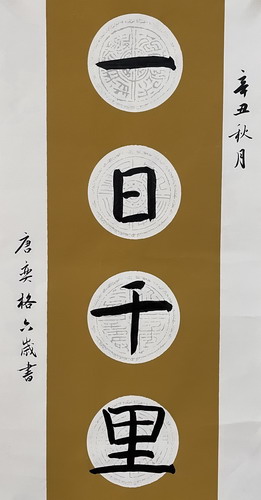 辛丑秋月
一日千里
唐奕格六歲書